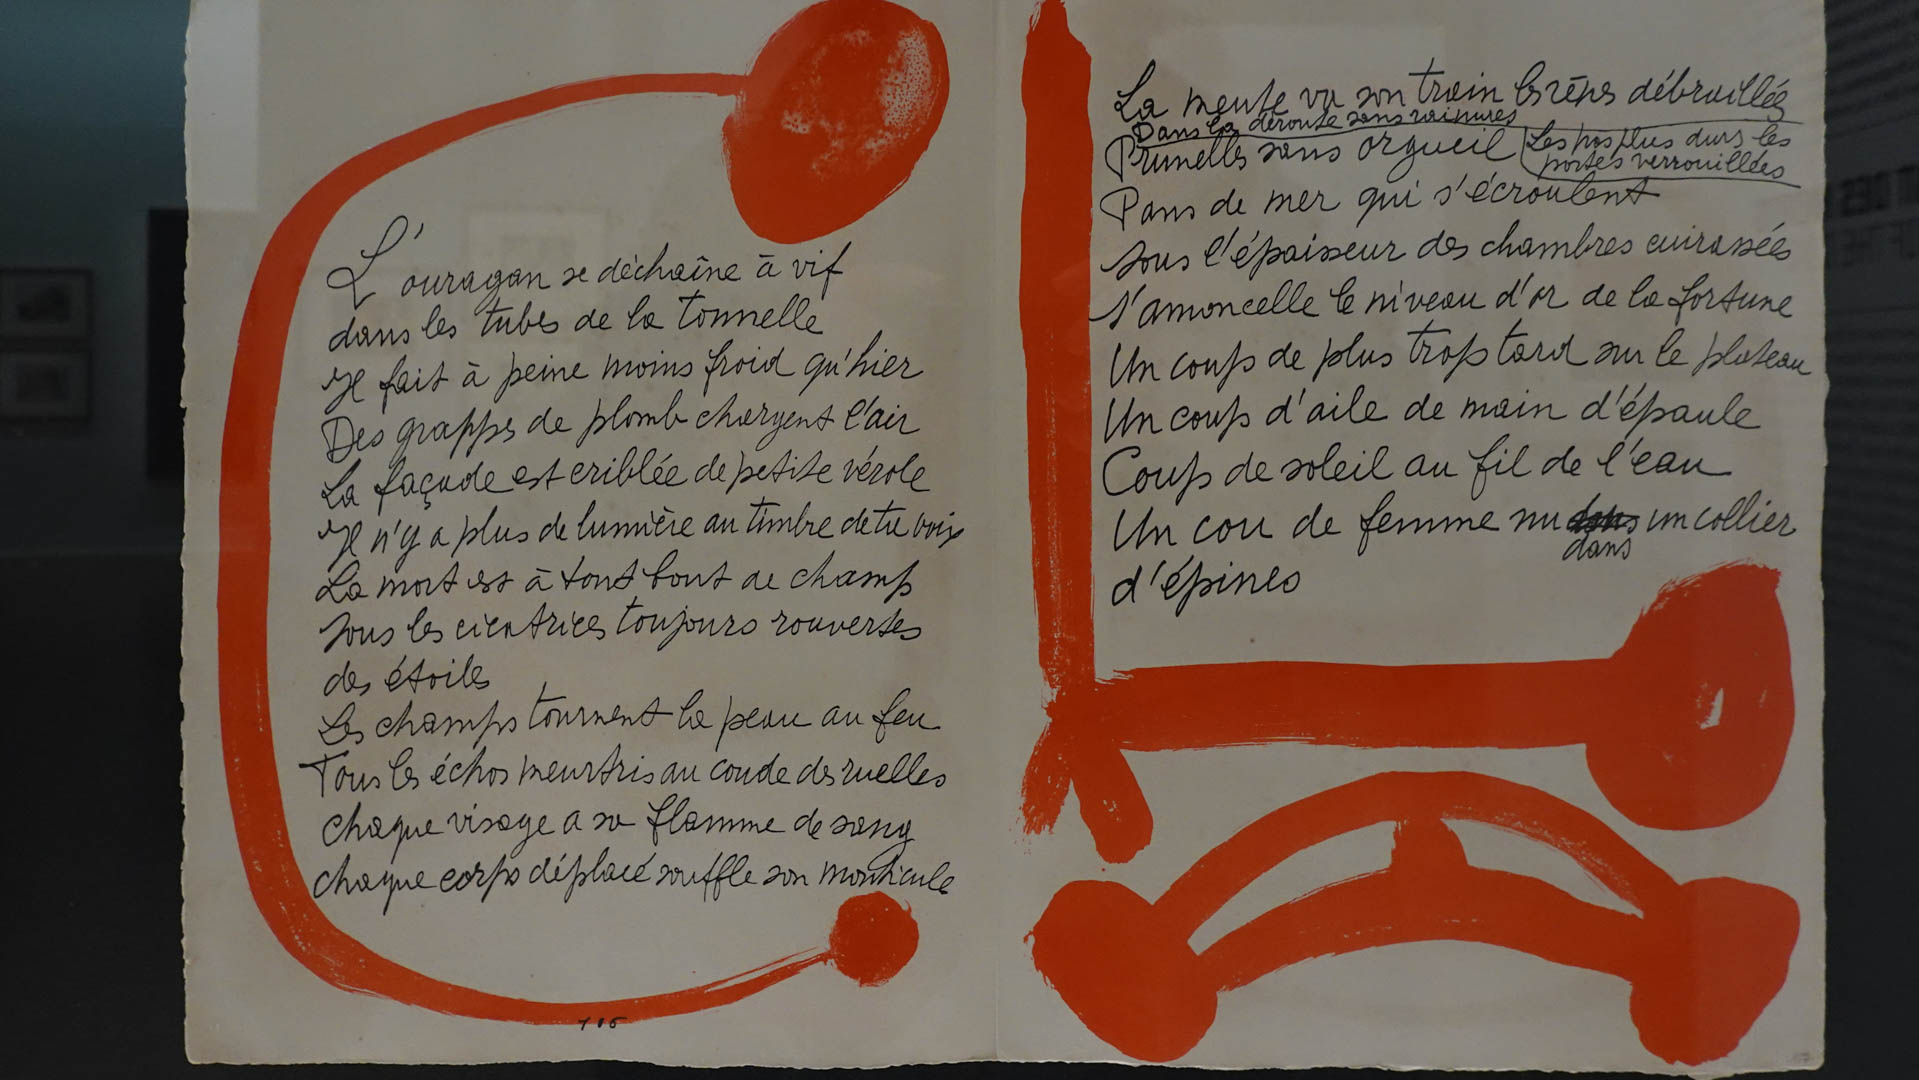 L'ouragan se déchaîne à vif
dans les tubes de la tonnelle
Il fait à peine moins froid qu'hier
Des grappes de plomb chargent l'air
La façade est criblée de petite vérole
Il n'y a plus de lumière au timbre de ta voix
La mort est à tout bout de champ
sous les cicatrices toujours rouvertes
des étoiles
Les champs tournent la peau au feu
Tous les échos meurtris au coude des ruelles
chaque visage a sa flamme de sang
chaque corps déplacé souffle son monticule
106
La meute va son train les rênes débraillées
Dans la déroute sans rainures
Prunelles sans orgueil
Les pas plus durs les
portes verrouillées
Pans de mer qui s'écroulent
sous l'épaisseur des chambres cuirassées
s'amoncelle le niveau d'or de la fortune
Un coup de plus trop tard sur le plateau
Un coup d'aile de main d'épaule
Coup de soleil au fil de l'eau
Un cou de femme nu dans un collier
d'épines